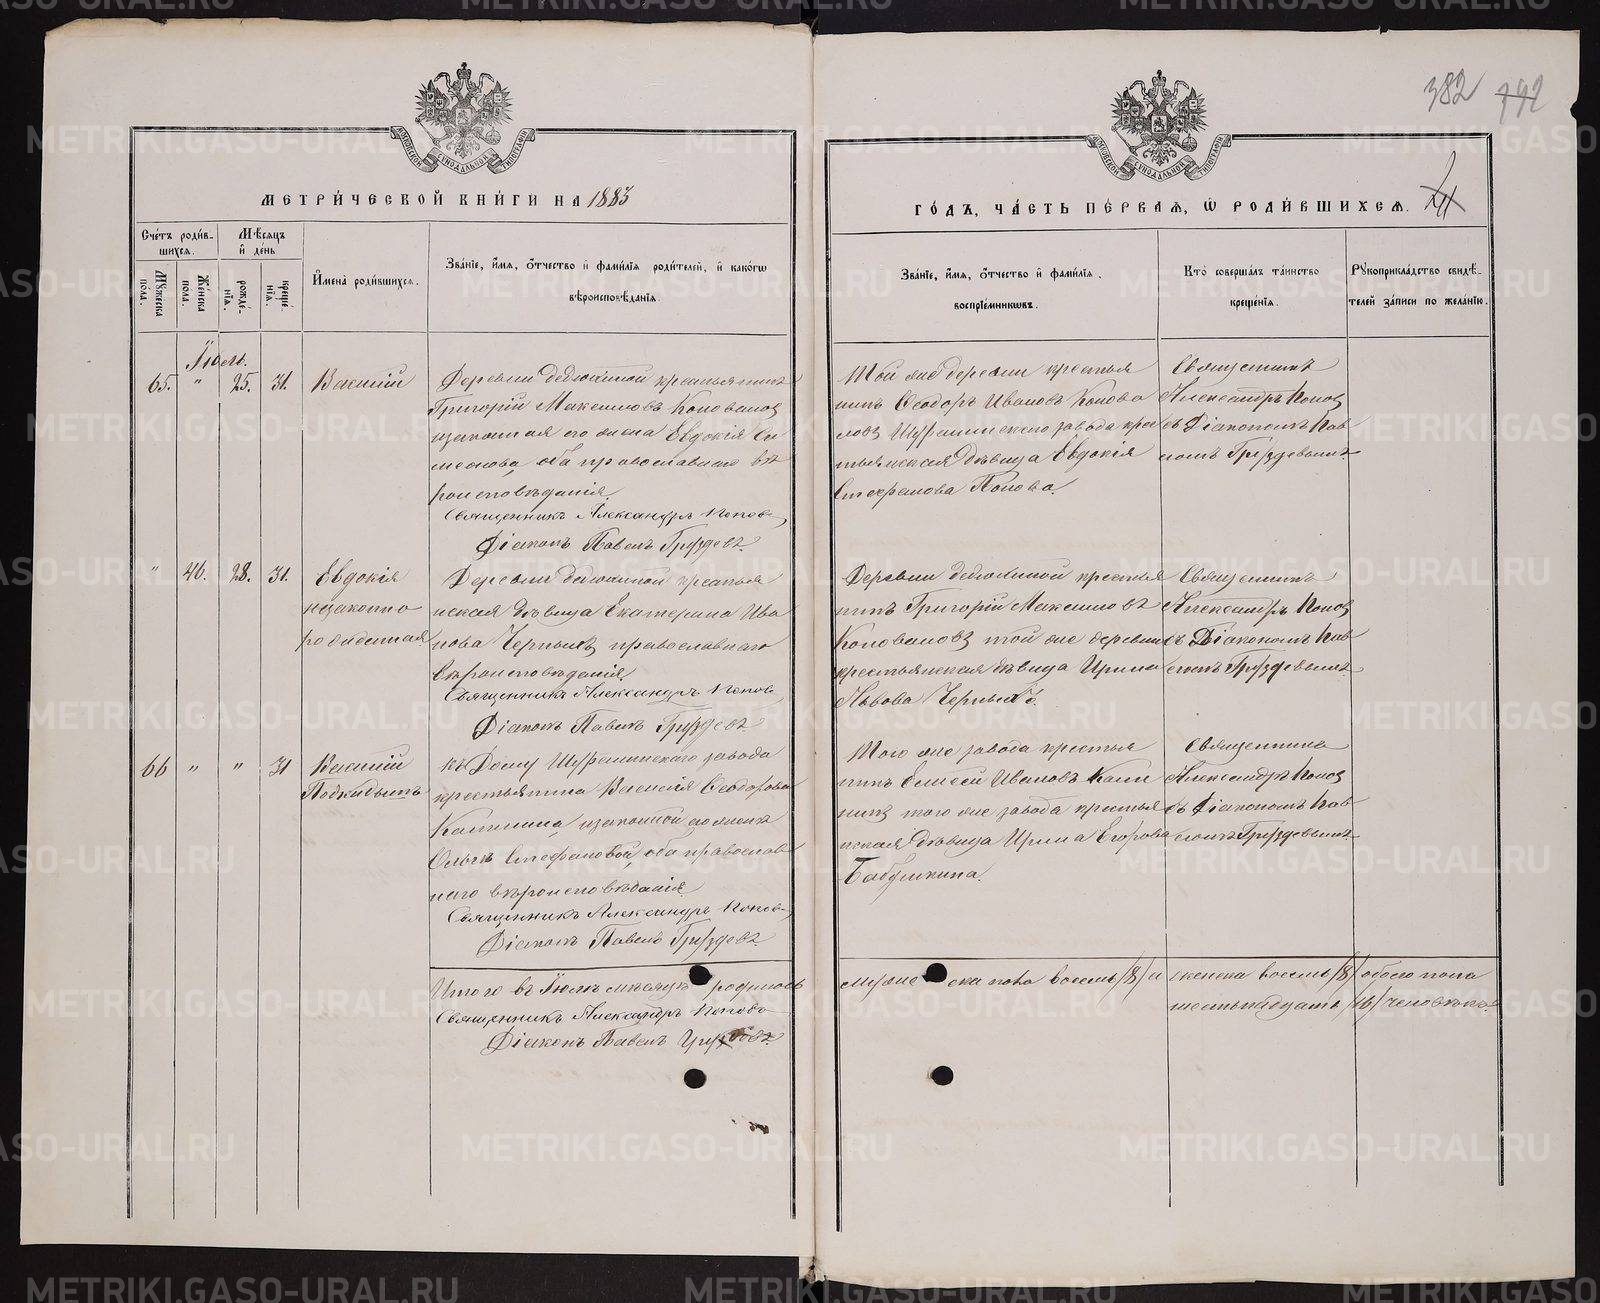 МЕТРИ́ЧЕСКОЙ КНИ́ГИ НА 1883
Сче́тъ роди́вшихся.
Мужеска пола.
Же́нска пола.
Мѣсяцъ и де́нь
рожде́нія.
креще́нія.
Имена̀ роди́вшихся.
Зва́ніе, и́мя, о́тчество и фами́лія роди́телей, и како́гѡ
вѣроисповѣ́данія.
Іюль.
65. " 25. 31. Василій
Деревни Дедюхиной крестьянинъ
Григорій Максимовъ Коноваловъ
и законная его жена Евдокія Си
меонова, оба православнаго вѣ
роисповѣданія.
Священникъ Александръ Поповъ
Діаконъ Павелъ Груздевъ.
" 46. 28. 31. Евдокія
незаконно
рожденная
Деревни Дедюхиной крестья
нская дѣвица Екатерина Ива
нова Черныхъ православнаго
вѣроисповѣданія.
Священникъ Александръ Поповъ
Діаконъ Павелъ Груздевъ.
66 " " 31 Василій
Подкидышъ
къ Дому Шуралинскаго завода
крестьянина Василія Ѳеодорова
Калинина, и законной его женѣ
Ольгѣ Стефановой, оба православ
наго вѣроисповѣданія.
Священникъ Александръ Поповъ
Діаконъ Павелъ Груздевъ.
Итого въ Іюлѣ мѣсяцѣ родилось
Священникъ Александръ Поповъ
Діаконъ Павелъ Груздевъ.
382 792
ГО́ДЪ, ЧА́СТЬ ПЕ́РВАЯ, Ѡ РОДИ́ВШИХСЯ.
Зва́ніе, и́мя, о́тчество и фами́лія
воспріе́мниковъ.
Кто̀ соверша́лъ та́инство
креще́нія.
Рукоприкла́дство свидѣ́-
телей за́писи по жела́нію.
Той же деревни крестья
нинъ Ѳеодоръ Ивановъ Конова
ловъ Шуралинскаго завода крес
тьянская дѣвица Евдокія
Стефанова Попова.
Священникъ
Александръ Поповъ
съ Діакономъ Пав
ломъ Груздевымъ
Деревни Дедюхиной крестья
нинъ Григорій Максимовъ
Коноваловъ той же деревни
крестьянская дѣвица Ирина
Львова Черныхъ.
Священникъ
Александръ Поповъ
съ Діакономъ Пав
ломъ Груздевымъ
Того же завода крестья
нинъ Елисей Ивановъ Кали
нинъ того же завода крестья
нская дѣвица Ирина Егорова
Бабушкина.
Священникъ
Александръ Поповъ
съ Діакономъ Пав
ломъ Груздевымъ
мужеска пола восемь /8/ и женска восемь /8/ обоего пола
шестьнадцать /16/ человѣкъ.
METRIKI.GASO-URAL.RU